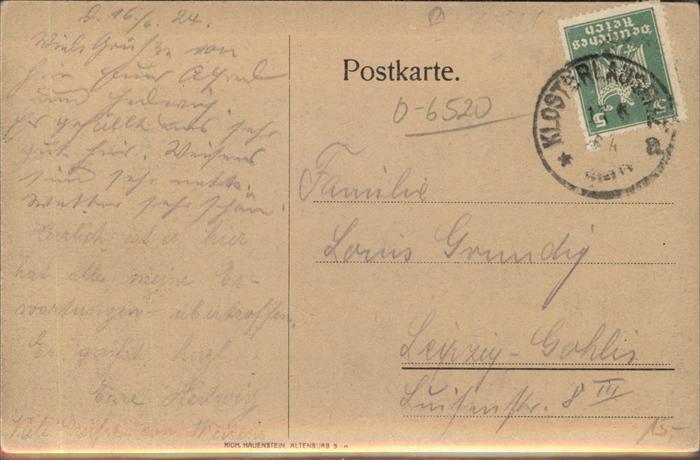 D. 16./6. 24.
Viele Grüße von
hier Alfred
und Hedwig.
Es gefällt uns sehr
gut hier.
sind sehr nett.
Wetter sehr schön.
Herrlich ist es hier,
hat alle meine Er-
wartungen übertroffen.
Es grüßt herzl.
Eure Hedwig
Viele Grüße von
Postkarte.
D-6520
Deutsches
Reich
5
KLOSTERLAUSNITZ
a
Familie
Louis Grundig
Leipzig-Gohlis
Luisenstr. 8 III
15-
RICH. HAUENSTEIN, ALTENBURG S.-A.